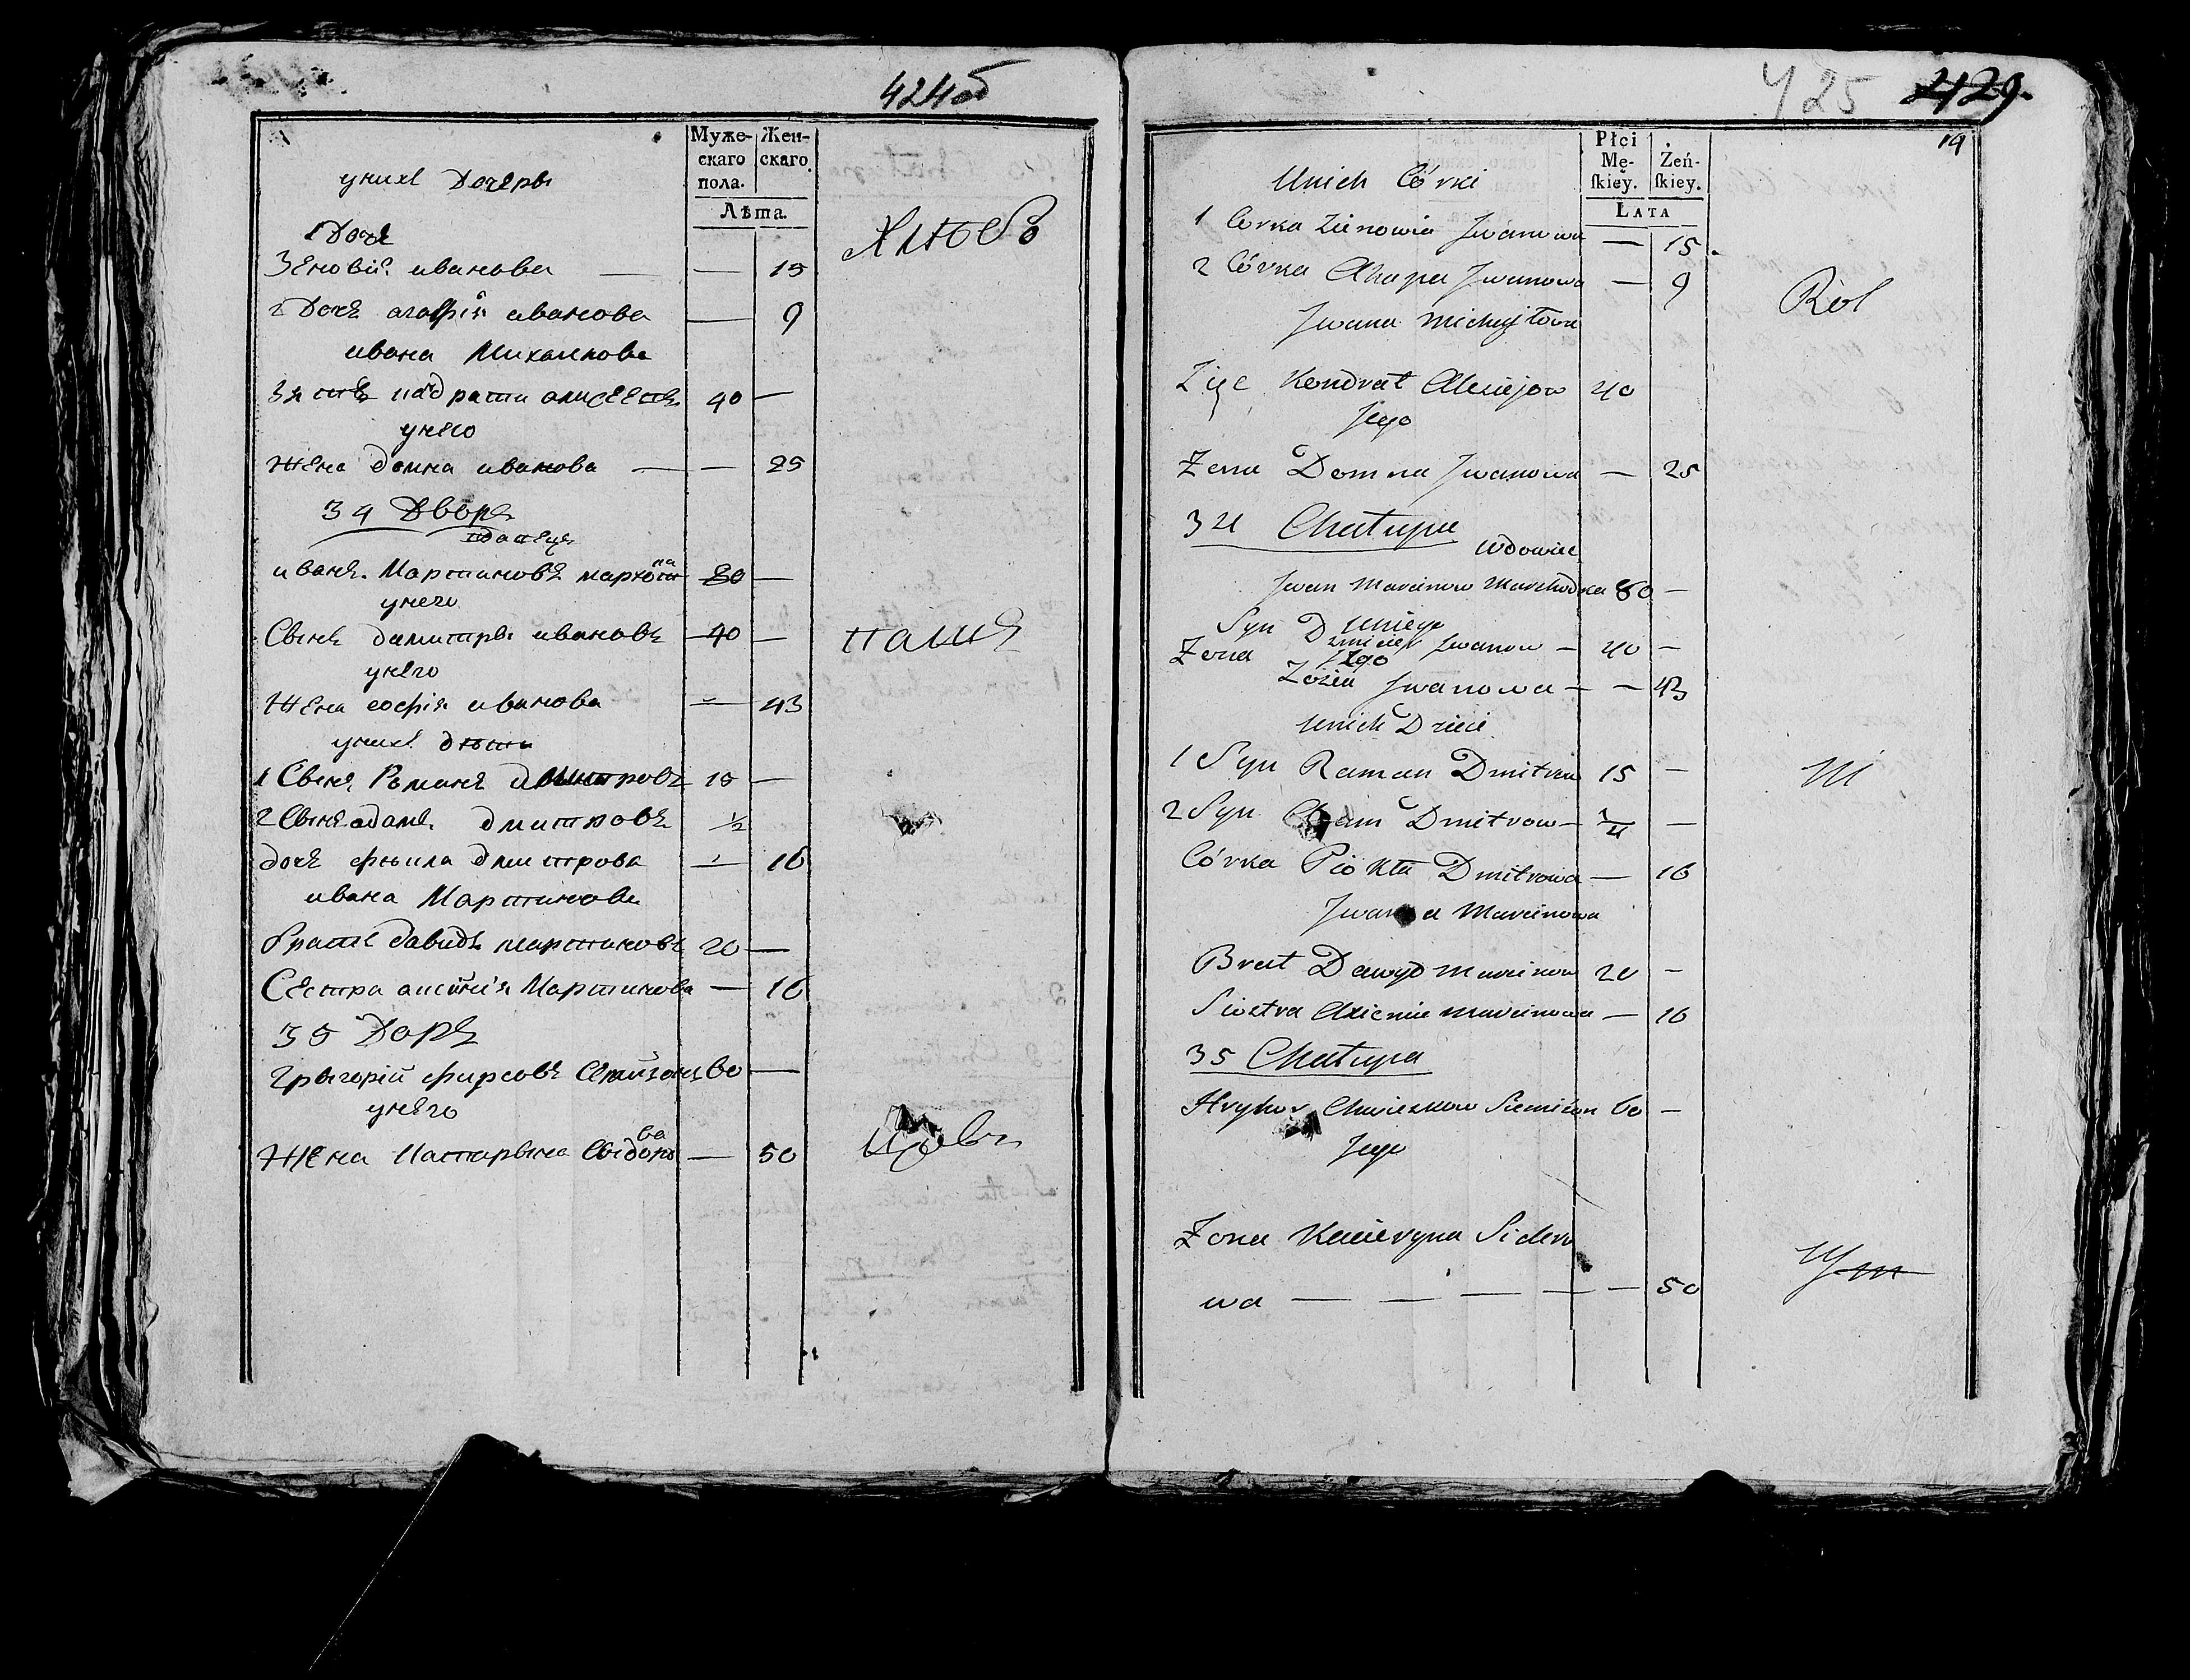 424об
Муже-
скаго
пола.
Жен-
скаго
Лѣта.
унихъ Дочеры
1 Дочь
Зеновія иванова — — 15
2 Дочь агафія иванова — 9
ивана Михаилова
Зять 40 —
унего
Жена домна иванова — — 25
34 Дворъ
вдавецъ
иванъ Мартиновъ 80 —
унего
Сынъ дамитры ивановъ 40 —
унего
Жена софія иванова — 43
унихъ дѣти
1 Сынъ Романъ дмитровъ 15 —
2 Сынъ адамъ дмитровъ 1/2
дочь дмитрова — 16
ивана Мартинова
братъ давидъ мартиновъ 20 —
Сестра аксинія Мартинова — 16
35 Дворъ
Грыгорій фирсовъ 60 —
унего
Жена Катарына Сыдорова — 50
425 429.
19
Płci
Mę-
skiey.
Żeń-
skiey.
LATA
Unich Córki
1 Corka Zienowia Jwanowa — 15
2 Córka Ahapa Jwanowa — 9
Jwana Michayłowa
Zięc Kondrat Alexiejow 40
Jego
Zena Domna Jwanowa — 25
34 Chałupa
Wdowiec
Jwan Marcinow 80 —
Uniego
Syn Dzmicier Jwanow — 40 —
Jego
Zona Zosia Jwanowa — — 43
Unich Dzieci
1 Syn Raman Dmitrow 15 —
2 Syn Adam Dmitrow — —
Córka Dmitrowa — 16
Jwana Marcinowa
Brat Dawyd Marcinow 20 —
Siostra Axienia Marcinowa — 16
35 Chałupa
Hryhor 60 —
Jego
Zona Kacieryna Sidoro
wa — — — — — 50
Rol